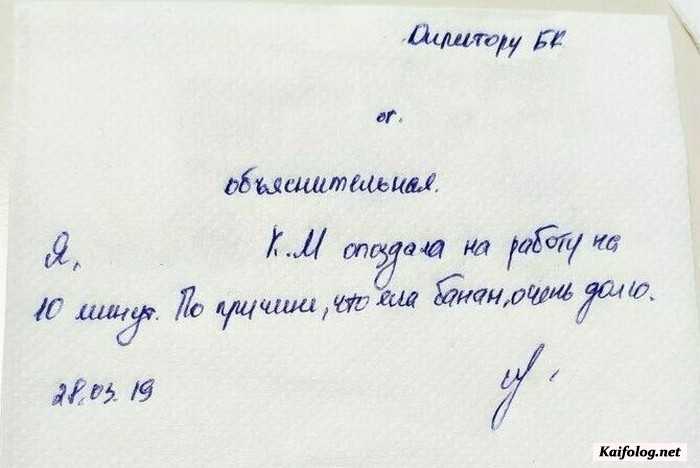 Директору БК
от.
объяснительная.
Я, К.М опоздала на работу на
10 минут. По причине, что ела банан, очень долго.
28.03.19
Kaifolog.net